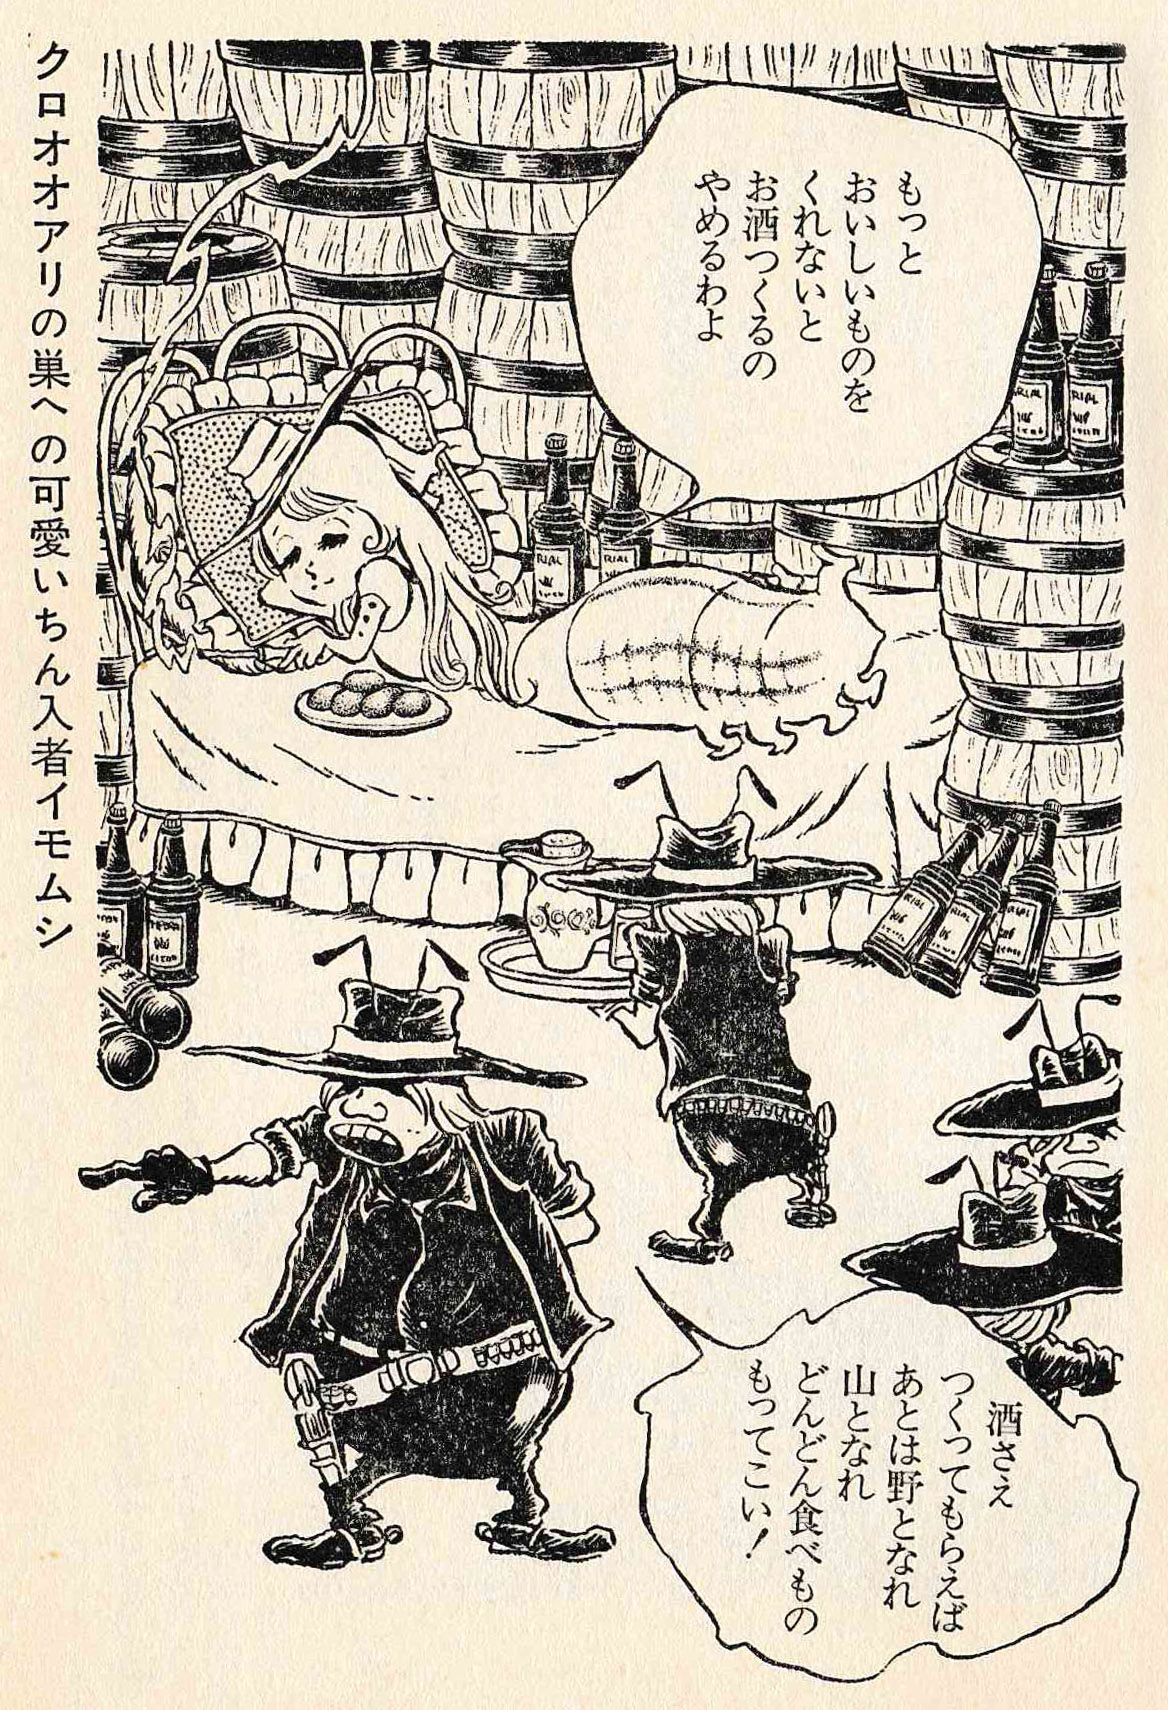 もっと
おいしいものを
くれないと
お酒つくるの
やめるわよ
酒さえ
つくってもらえば
あとは野となれ
山となれ
どんどん食べもの
もってこい!
クロオオアリの巣への可愛いちん入者イモムシ
RIAL
RIAL
RIAL
RIAL
RIAL
RIAL
RIAL